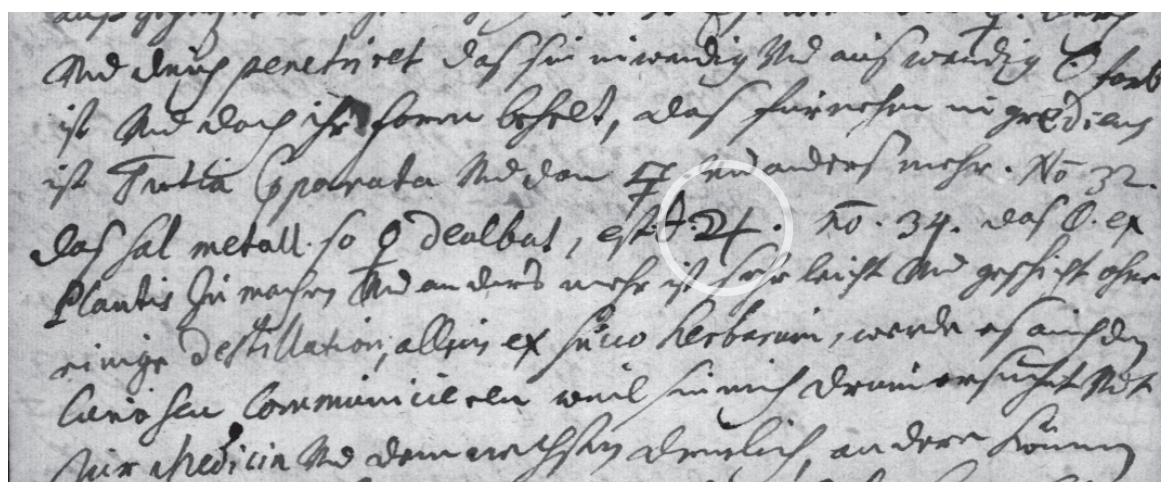 Und durch penetriret das sie inwendig Und auswendig ☾ farb
ist Und doch ihr form behelt, das fürnehm ingrediens
ist Tutia pparata Und von und anders mehr. No 32.
das sal metall. so ♀ dealbat, est ♃. No. 34. das ex
Plantis zu machen Und anders mehr ist sehr leicht Und geschicht ohne
einige Destillation, allein ex succo herbarum, werde es auch den
Curiosen Communiciren weil sie mich drum ersucht
Zur Medicin Und dem wachsen andere können